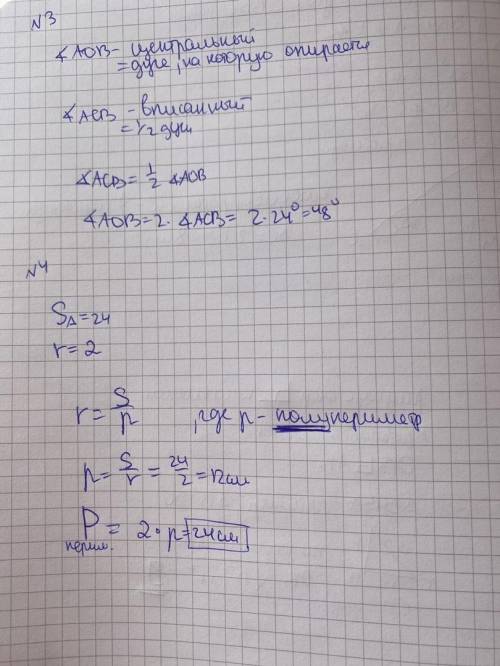 N3
∡AOB – центральный
= дуге, на которую опирается
∡ACB – вписанный
= 1/2 дуги
∡ACB = 1/2 ∡AOB
∡AOB = 2 · ∡ACB = 2 · 24° = 48°
N4
S△ = 24
r = 2
r = S/p , где p – полупериметр
p = S/r = 24/2 = 12см
P = 2 · p = 24см
перим.